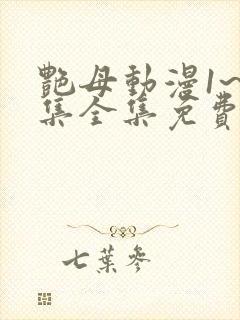 艷母動漫1~
集全集免費
七葉參